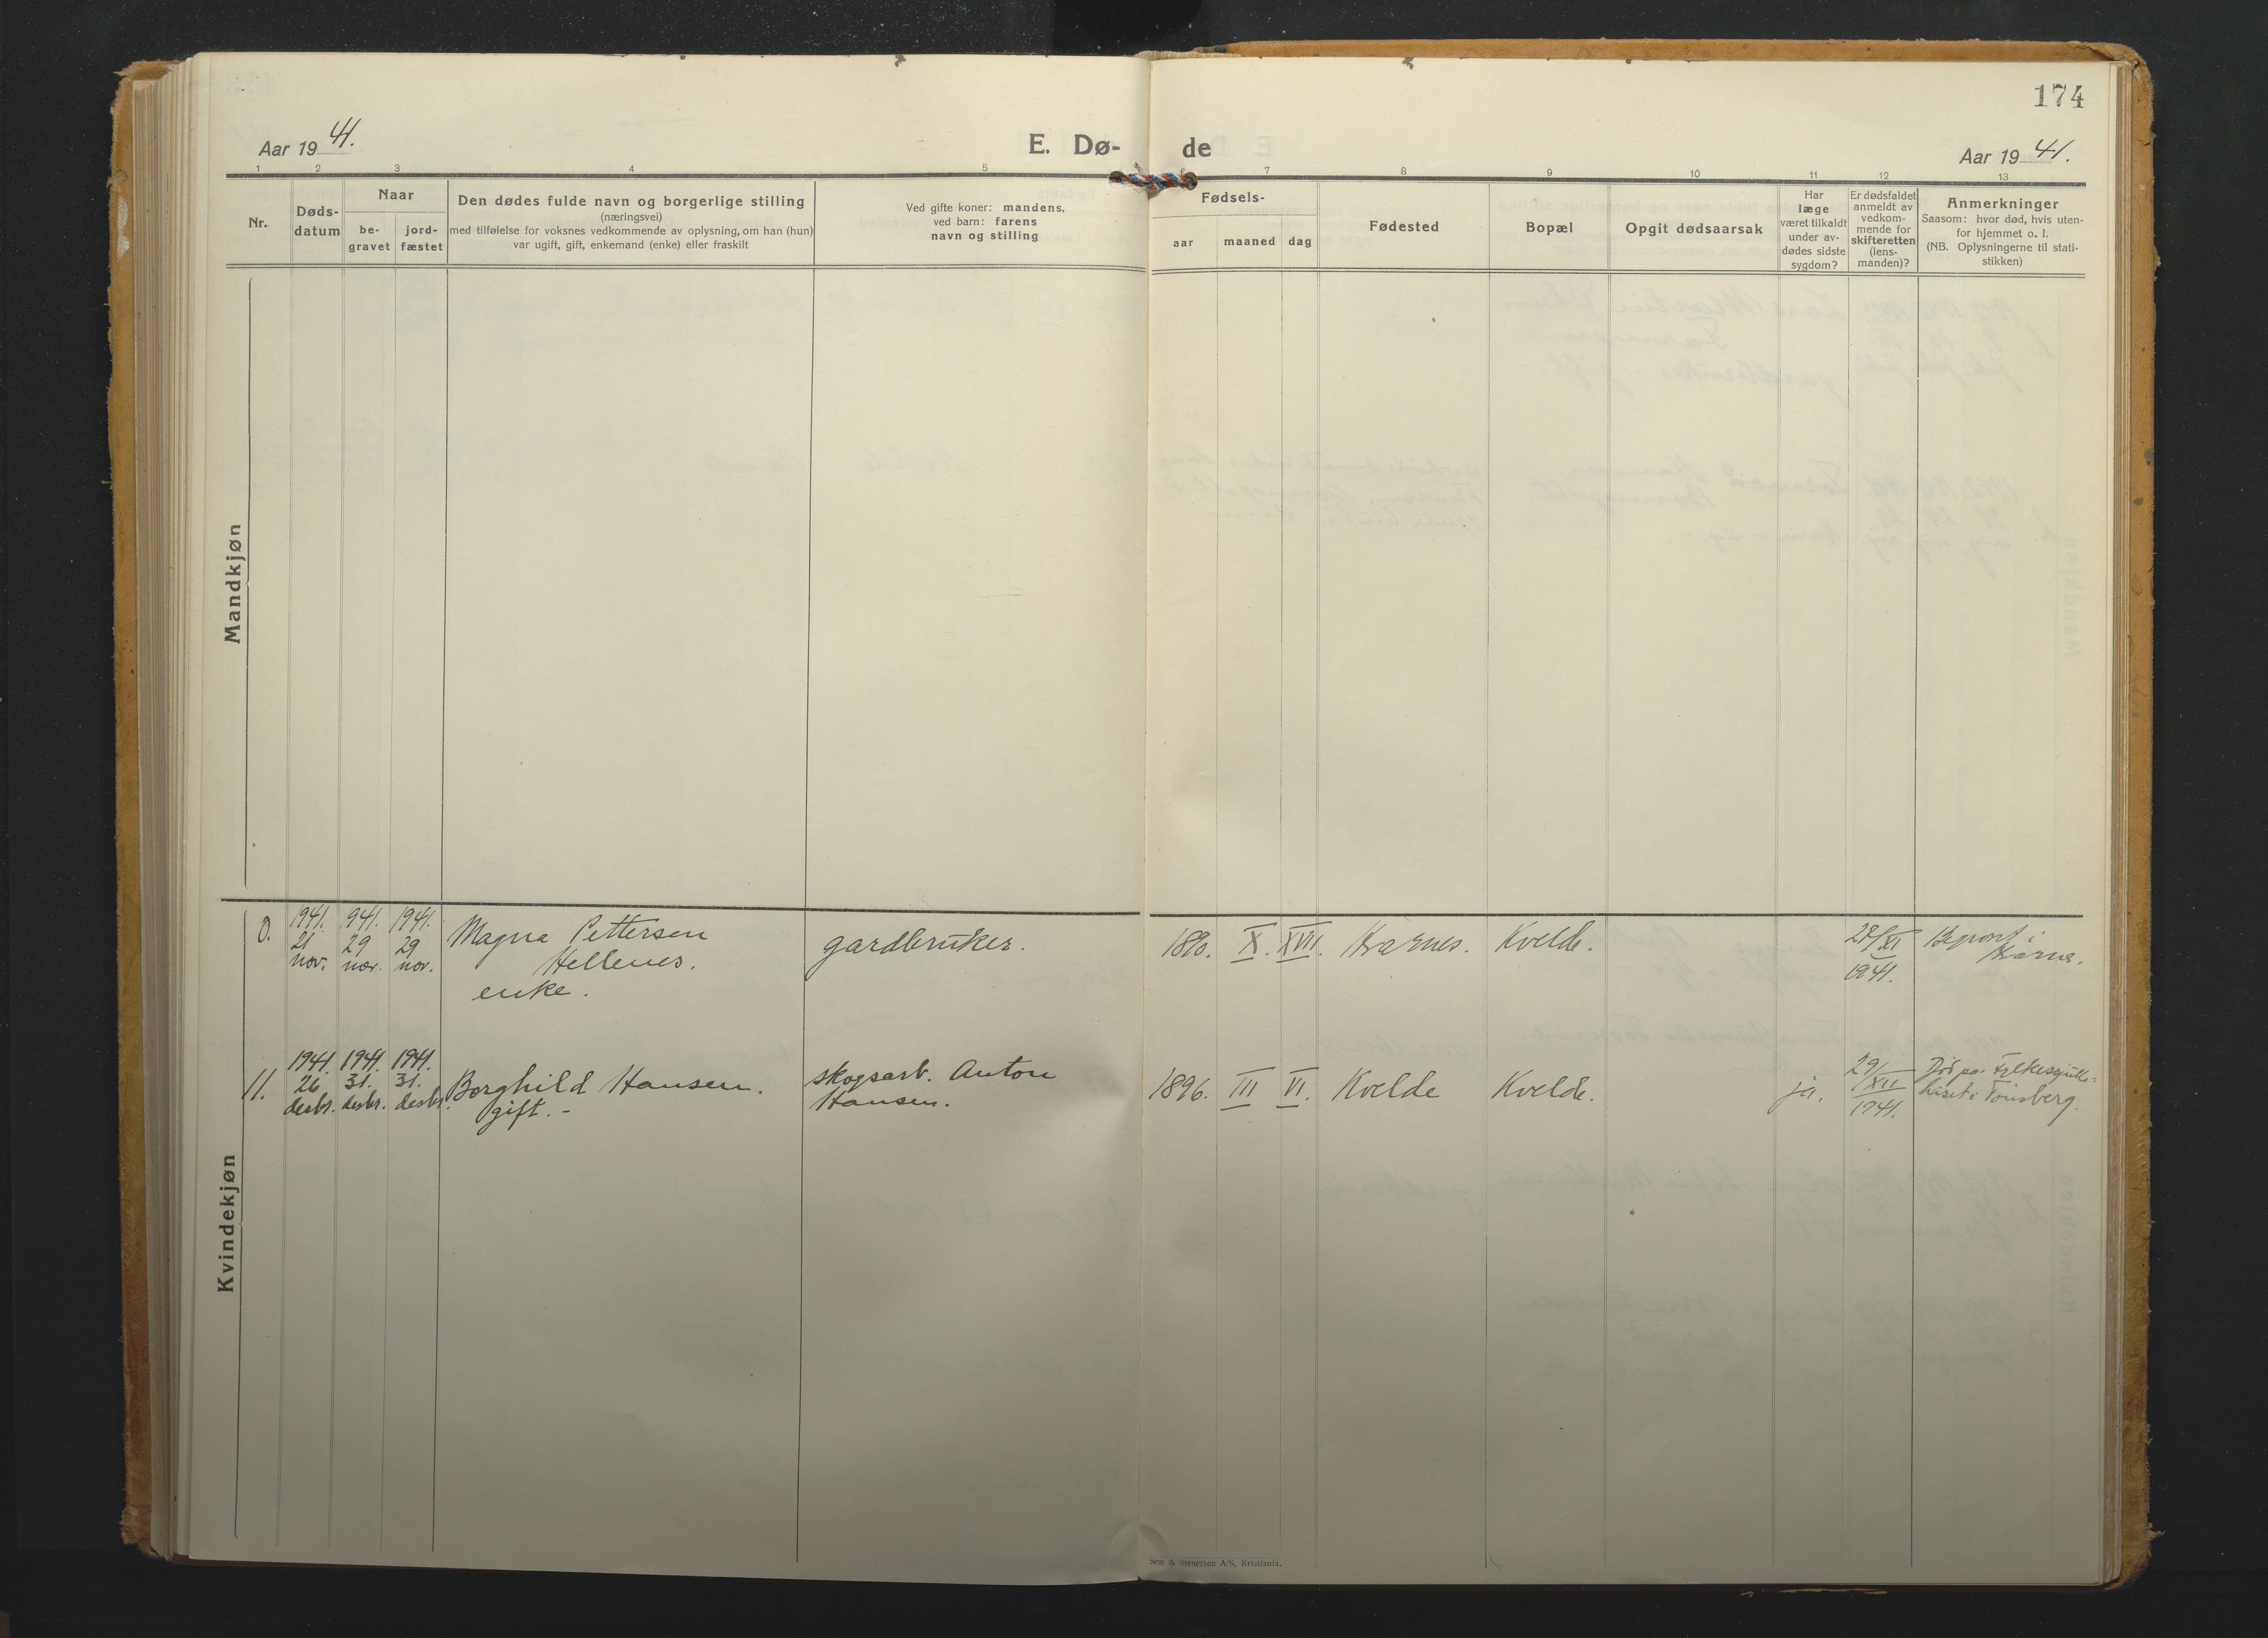 174
Aar 19 41.
E. Dø-
de
Aar 19 41.
1 2 3 4 5 6 7 8 9 10 11 12 13
Nr.
Døds-
datum
Naar
be-
gravet
jord-
fæstet
Den dødes fulde navn og borgerlige stilling
(næringsvei)
med tilføielse for voksnes vedkommende av oplysning, om han (hun)
var ugift, gift, enkemand (enke) eller fraskilt
Ved gifte koner: mandens,
ved barn: farens
navn og stilling
Fødsels-
aar
maaned
dag
Fødested
Bopæl
Opgit dødsaarsak
Har
læge
været tilkaldt
under av-
dødes sidste
sygdom?
Er dødsfaldet
anmeldt av
vedkom-
mende for
skifteretten
(lens-
manden)?
Anmerkninger
Saasom: hvor død, hvis uten-
for hjemmet o. l.
(NB. Oplysningerne til stati-
stikken)
Mandkjøn
Kvindekjøn
0.
1941.
21
nov.
941.
29
nov.
1941.
29
nov.
Magna Pettersen
Hellenes.
enke.
gardbruker.
1890.
X.
XVII.
Kvelde.
28/XI
1941.
11.
1941.
26
desbr.
1941.
31.
desbr.
1941.
31.
desbr.
Borghild Hansen.
gift. -
skogsarb. Anton
Hansen.
1896.
III
VI.
Kvelde
Kvelde.
ja.
29/XII
1941.
Død pa. Fylkessjuke-
huset i Tønsberg.
Sem & Stenersen A/S, Kristiania.